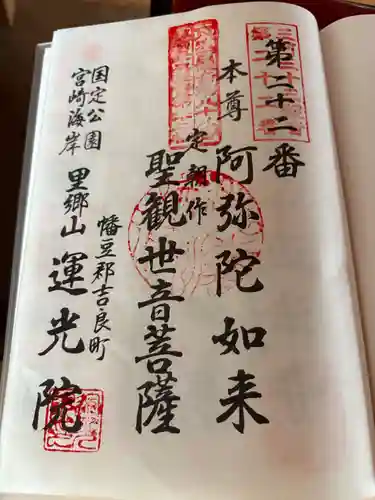 第二十二番
本尊
阿弥陀如来
定朝作
聖観世音菩薩
幡豆郡吉良町
国定公園
宮崎海岸
里郷山
運光院